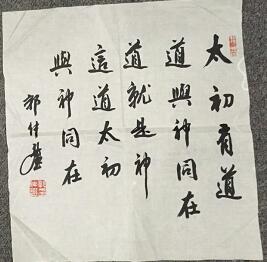 太初有道
道與神同在
道就是神
這道太初
與神同在